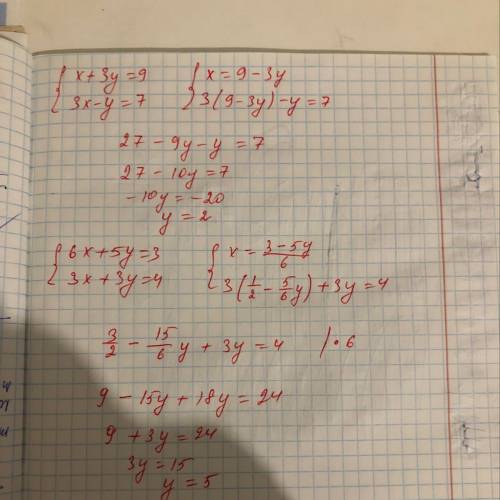 { x+3y=9   { x=9-3y
{ 3x-y=7   { 3(9-3y)-y=7
27 - 9y - y = 7
27 - 10y = 7
-10y = -20
y = 2
{ 6x+5y=3   { x = (3-5y)/6
{ 3x+3y=4   { 3(1/2 - 5/6 y) + 3y = 4
3/2 - 15/6 y + 3y = 4   /·6
9 - 15y + 18y = 24
9 + 3y = 24
3y = 15
y = 5